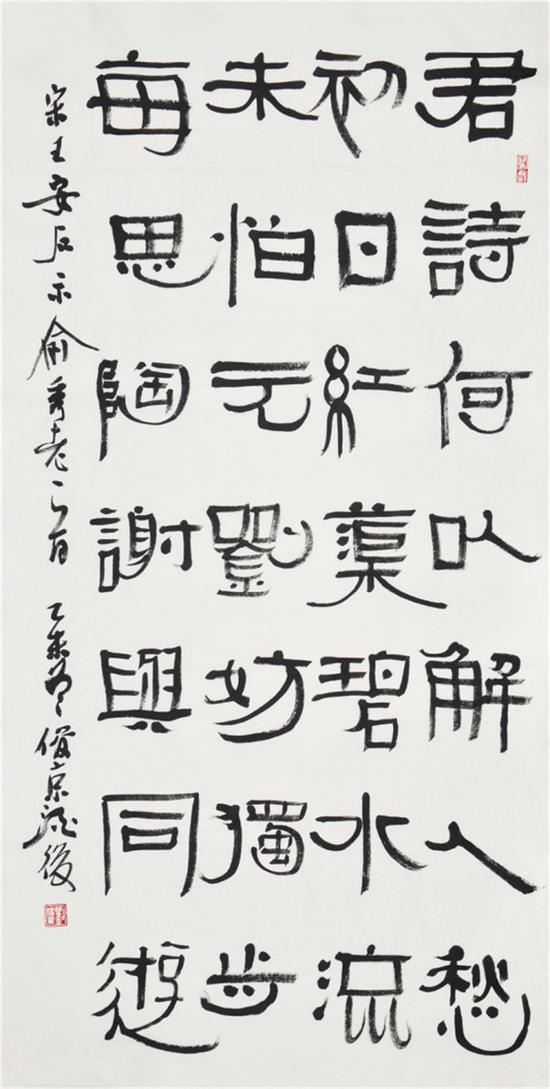 君詩何以解人愁
初日紅蕖碧水流
未怕元劉妨獨步
每思陶謝與同遊
宋王安石示俞秀老一首 乙未 後